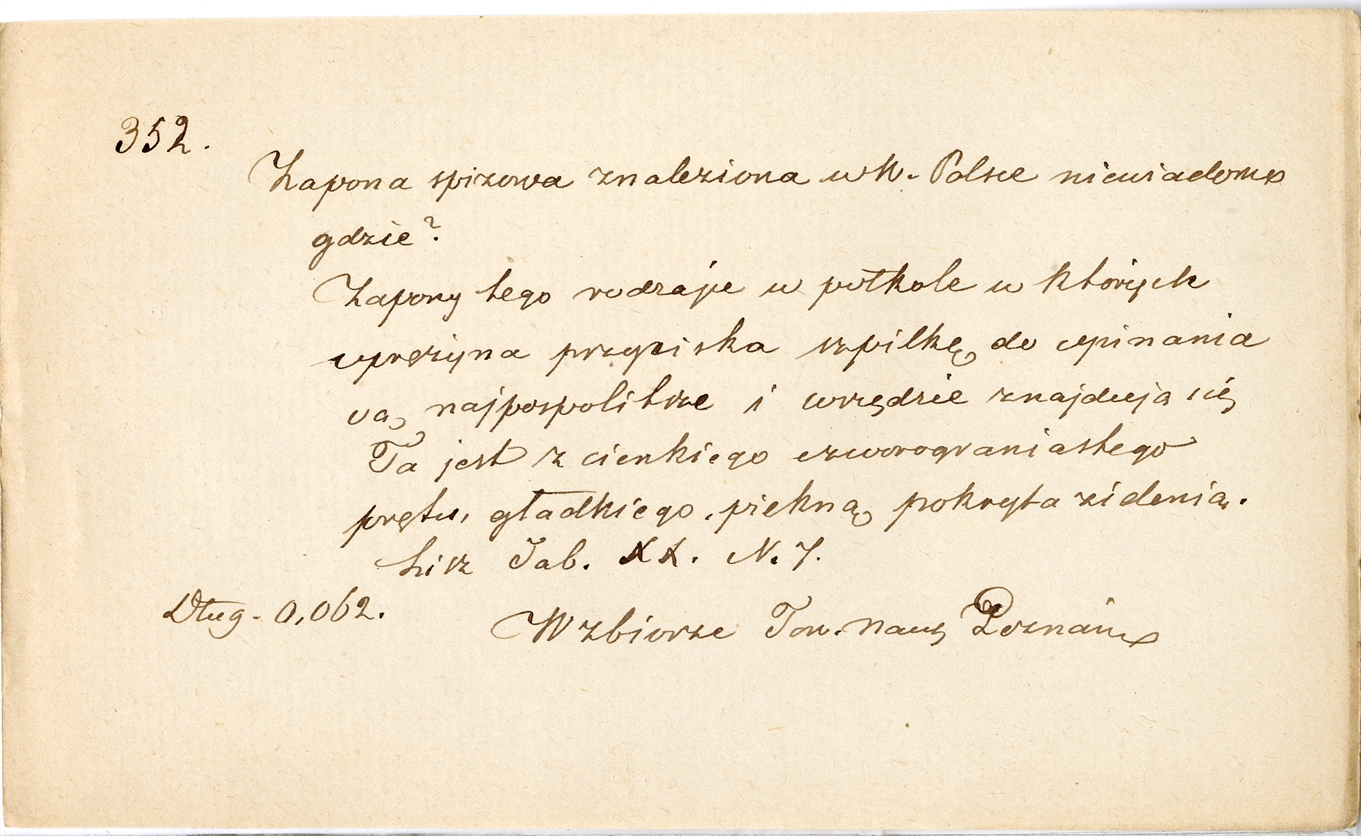 352.
Zapona spizowa znaleziona w W. Polsce niewiadomo
gdzie?
Zapony tego rodzaju w półkole w których
sprężyna przyciska szpilkę do upinania
są najpospolitsze i wszędzie znajdują się
Ta jest z cienkiego czworograniastego
prętu, gładkiego, piękną pokryta zidenią.
Lisz Tab. XX. N. 7.
Dług. 0,062.
W zbiorze Tow. Nauk Poznań